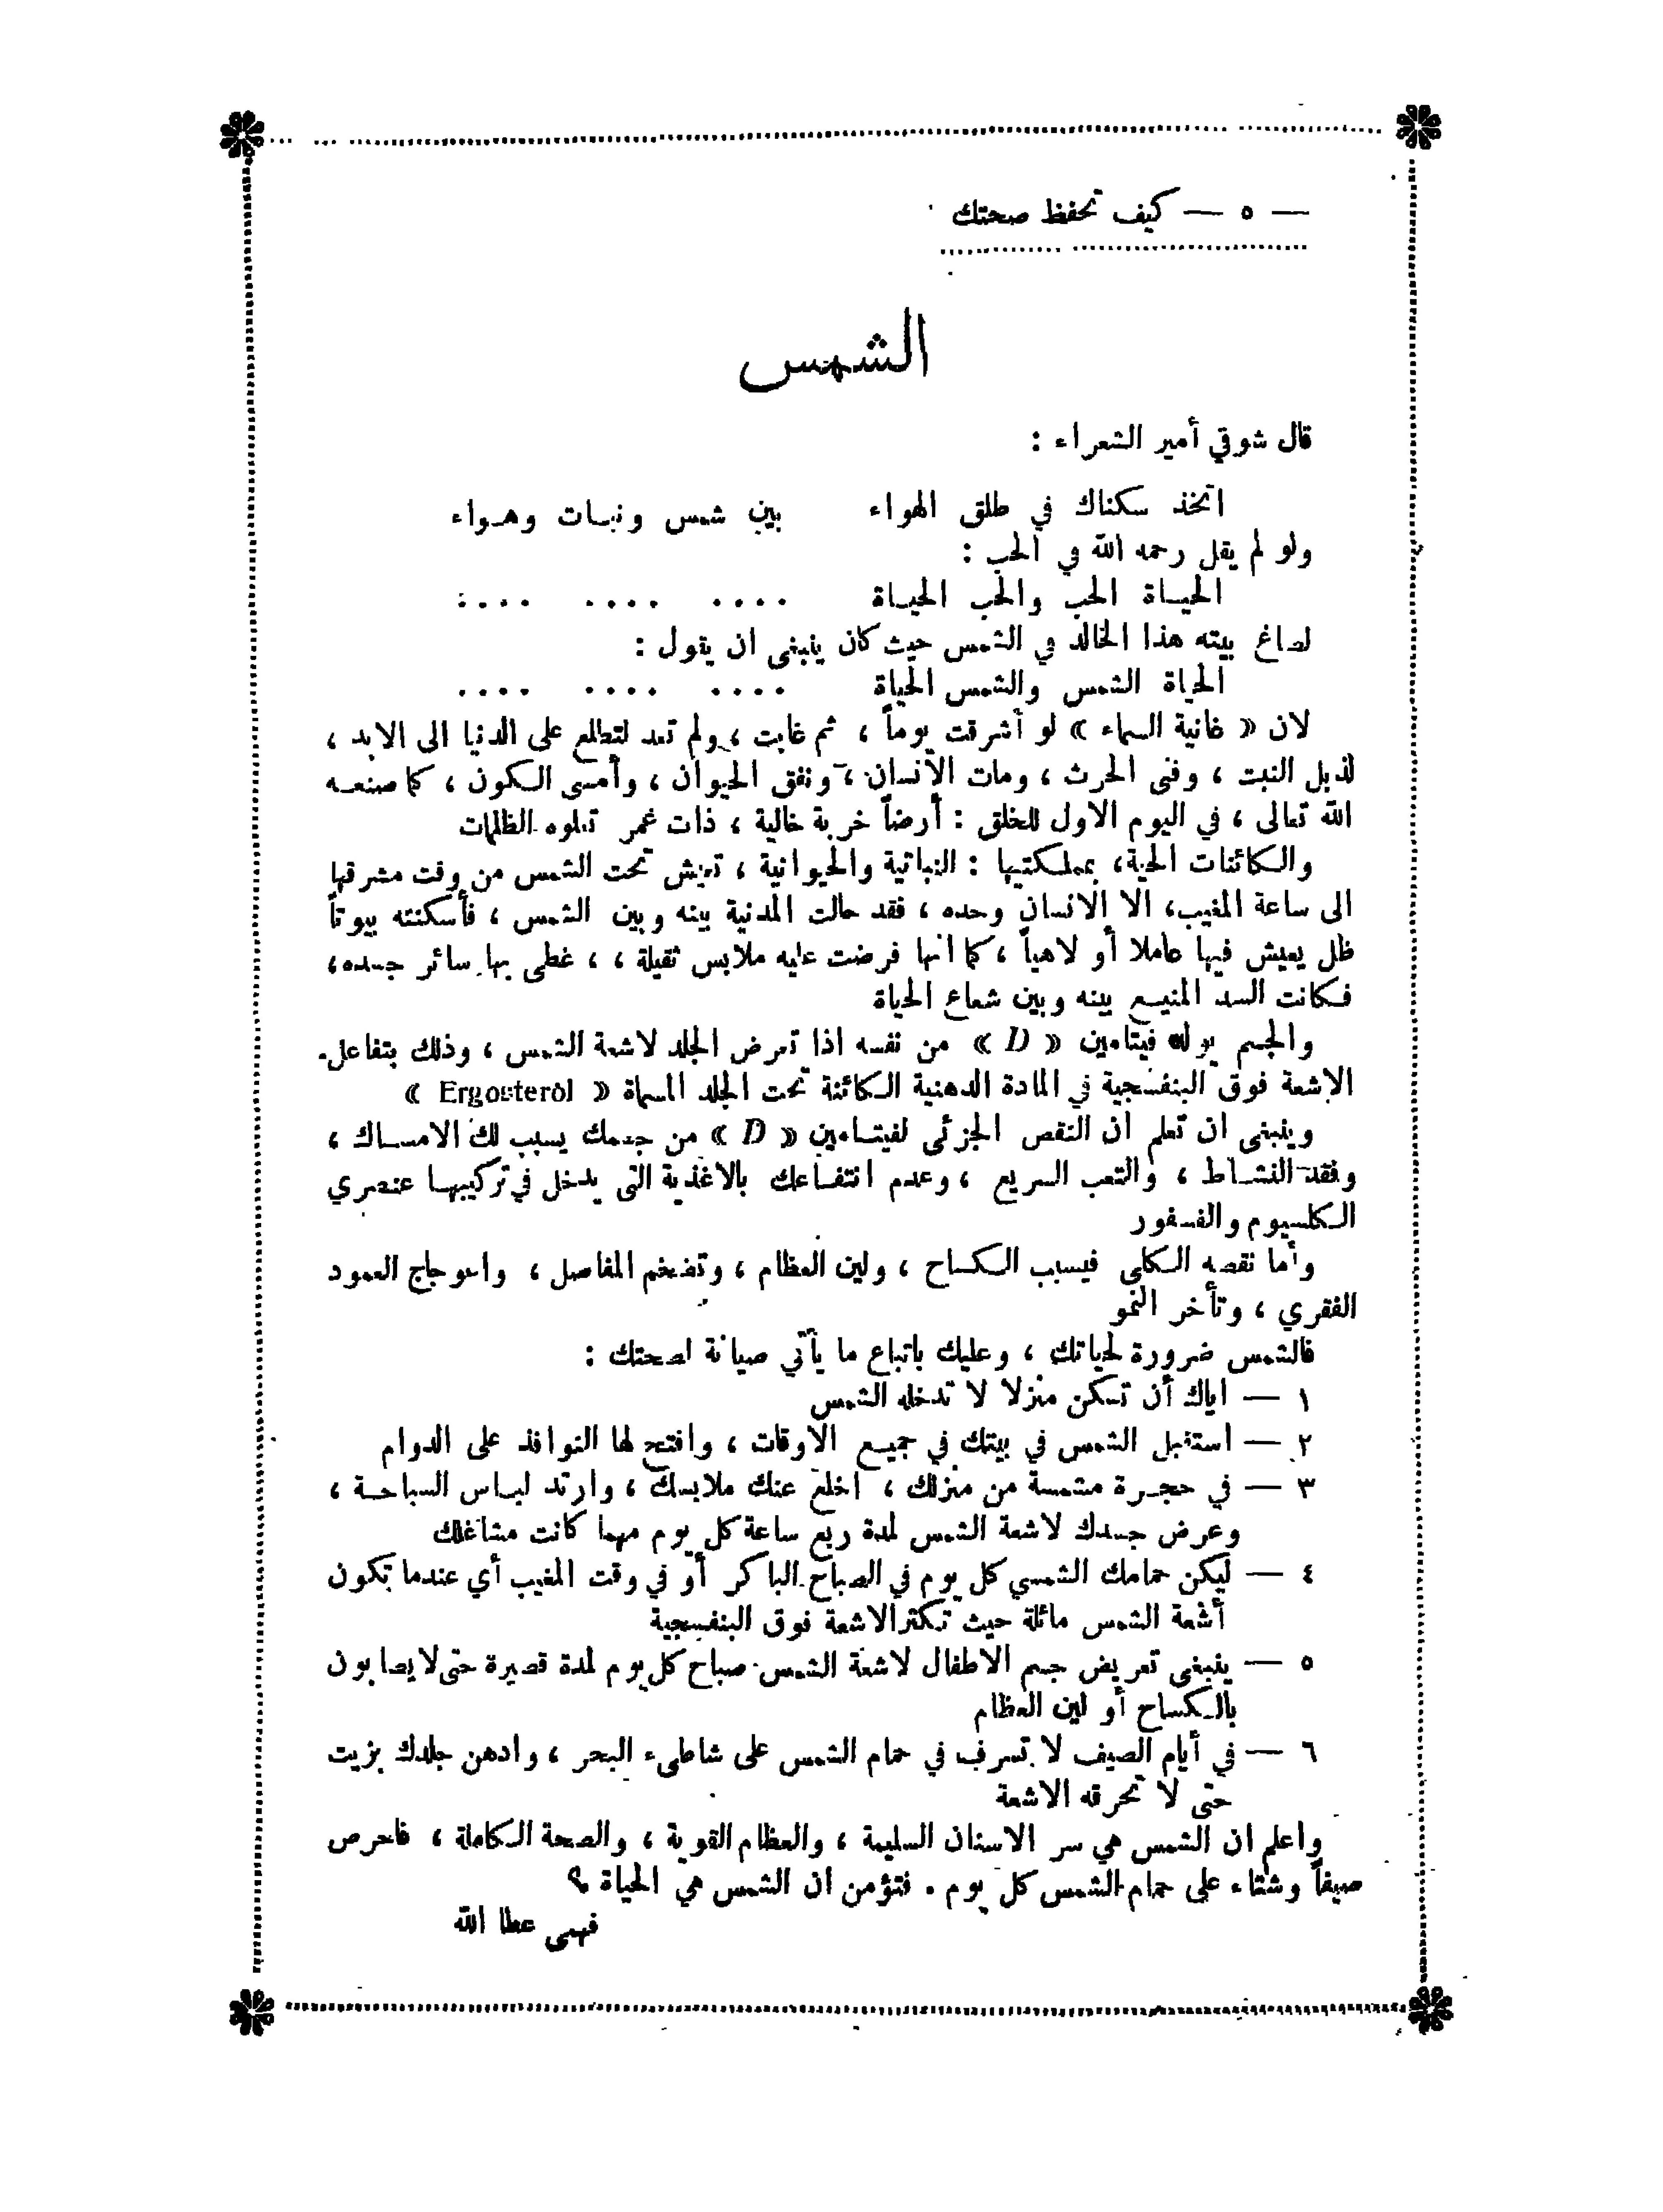 — ٥ — كيف تحفظ صحتك
الشمس
قال شوقي أمير الشعراء :
اتخذ سكناك في طلق الهواء بين شمس ونبات وهواء
ولو لم يقل رحمه الله في الحب :
الحياة الحب والحب الحياة .... .... ....
لصاغ بيته هذا الخالد في الشمس حيث كان ينبغي ان يقول :
الحياة الشمس والشمس الحياة .... .... ....
لان « غانية السماء » لو أشرقت يوماً ، ثم غابت ، ولم تعد لتطلع على الدنيا الى الابد ،
لذبل النبت ، وفنى الحرث ، ومات الانسان ، ونفق الحيوان ، وأمسى الكون ، كما صنعه
الله تعالى ، في اليوم الاول للخلق : أرضاً خربة خالية ، ذات غمر تعلوه الظلمات
والكائنات الحية ، بمملكتيها : النباتية والحيوانية ، تعيش تحت الشمس من وقت مشرقها
الى ساعة المغيب ، الا الانسان وحده ، فقد حالت المدنية بينه وبين الشمس ، فأسكنته بيوتاً
ظل يعيش فيها عاملا أو لاهياً ، كما انها فرضت عليه ملابس ثقيلة ، ، غطى بها سائر جسده ،
فكانت السد المنيع بينه وبين شعاع الحياة
والجسم يولد فيتامين « D » من نفسه اذا تعرض الجلد لاشعة الشمس ، وذلك بتفاعل
الاشعة فوق البنفسجية في المادة الدهنية الكائنة تحت الجلد المسماة « Ergosterol »
وينبغي ان تعلم ان النقص الجزئي لفيتامين « D » من جسمك يسبب لك الامساك ،
وفقد النشاط ، والتعب السريع ، وعدم انتفاعك بالاغذية التي يدخل في تركيبها عنصري
الكلسيوم والفسفور
وأما نقصه الكلي فيسبب الكساح ، ولين العظام ، وتضخم المفاصل ، واعوجاج العمود
الفقري ، وتأخر النمو
فالشمس ضرورة لحياتك ، وعليك باتباع ما يأتي صيانة لصحتك :
١ — اياك أن تسكن منزلا لا تدخله الشمس
٢ — استقبل الشمس في بيتك في جميع الاوقات ، وافتح لها النوافذ على الدوام
٣ — في حجرة مشمسة من منزلك ، اخلع عنك ملابسك ، وارتد لباس السباحة ،
وعرض جسدك لاشعة الشمس لمدة ربع ساعة كل يوم مهما كانت مشاغلك
٤ — ليكن حمامك الشمسي كل يوم في الصباح الباكر أو في وقت المغيب أي عندما تكون
أشعة الشمس مائلة حيث تكثر الاشعة فوق البنفسجية
٥ — ينبغي تعريض جسم الاطفال لاشعة الشمس صباح كل يوم لمدة قصيرة حتى لا يصابون
بالكساح أو لين العظام
٦ — في أيام الصيف لا تسرف في حمام الشمس على شاطىء البحر ، وادهن جلدك بزيت
حتى لا تحرقه الاشعة
واعلم ان الشمس هي سر الاسنان السليمة ، والعظام القوية ، والصحة الكاملة ، فاحرص
صيفاً وشتاء على حمام الشمس كل يوم . فتؤمن ان الشمس هي الحياة ؟
فهمى عطا الله